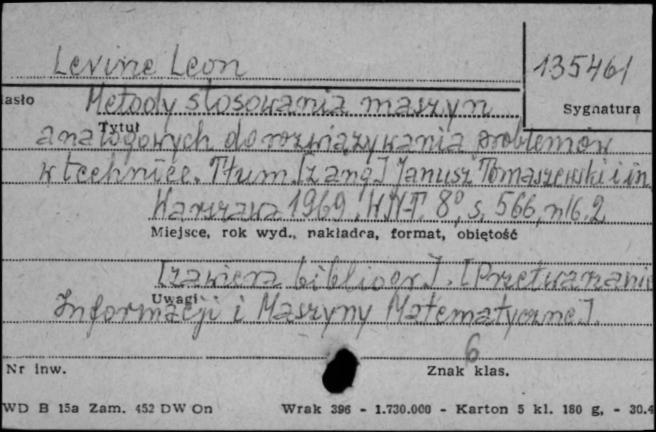 Levine Leon
135461
asło
Sygnatura
Metody stosowania maszyn
Tytuł
analogowych do rozwiązywania problemów
w technice. Tłum. [z ang.] Janusz Tomaszewski i in.
Warszawa 1969. WNT. 8°, s. 566, nlb. 2
Miejsce, rok wyd., nakładca, format, objętość
[zawiera bibliogr.]. [Przetwarzanie
Uwagi
Informacji i Maszyny Matematyczne].
6
Nr inw.
Znak klas.
WD B 15a Zam. 452 DW On Wrak 396 - 1.730.000 - Karton 5 kl. 180 g. - 30.4